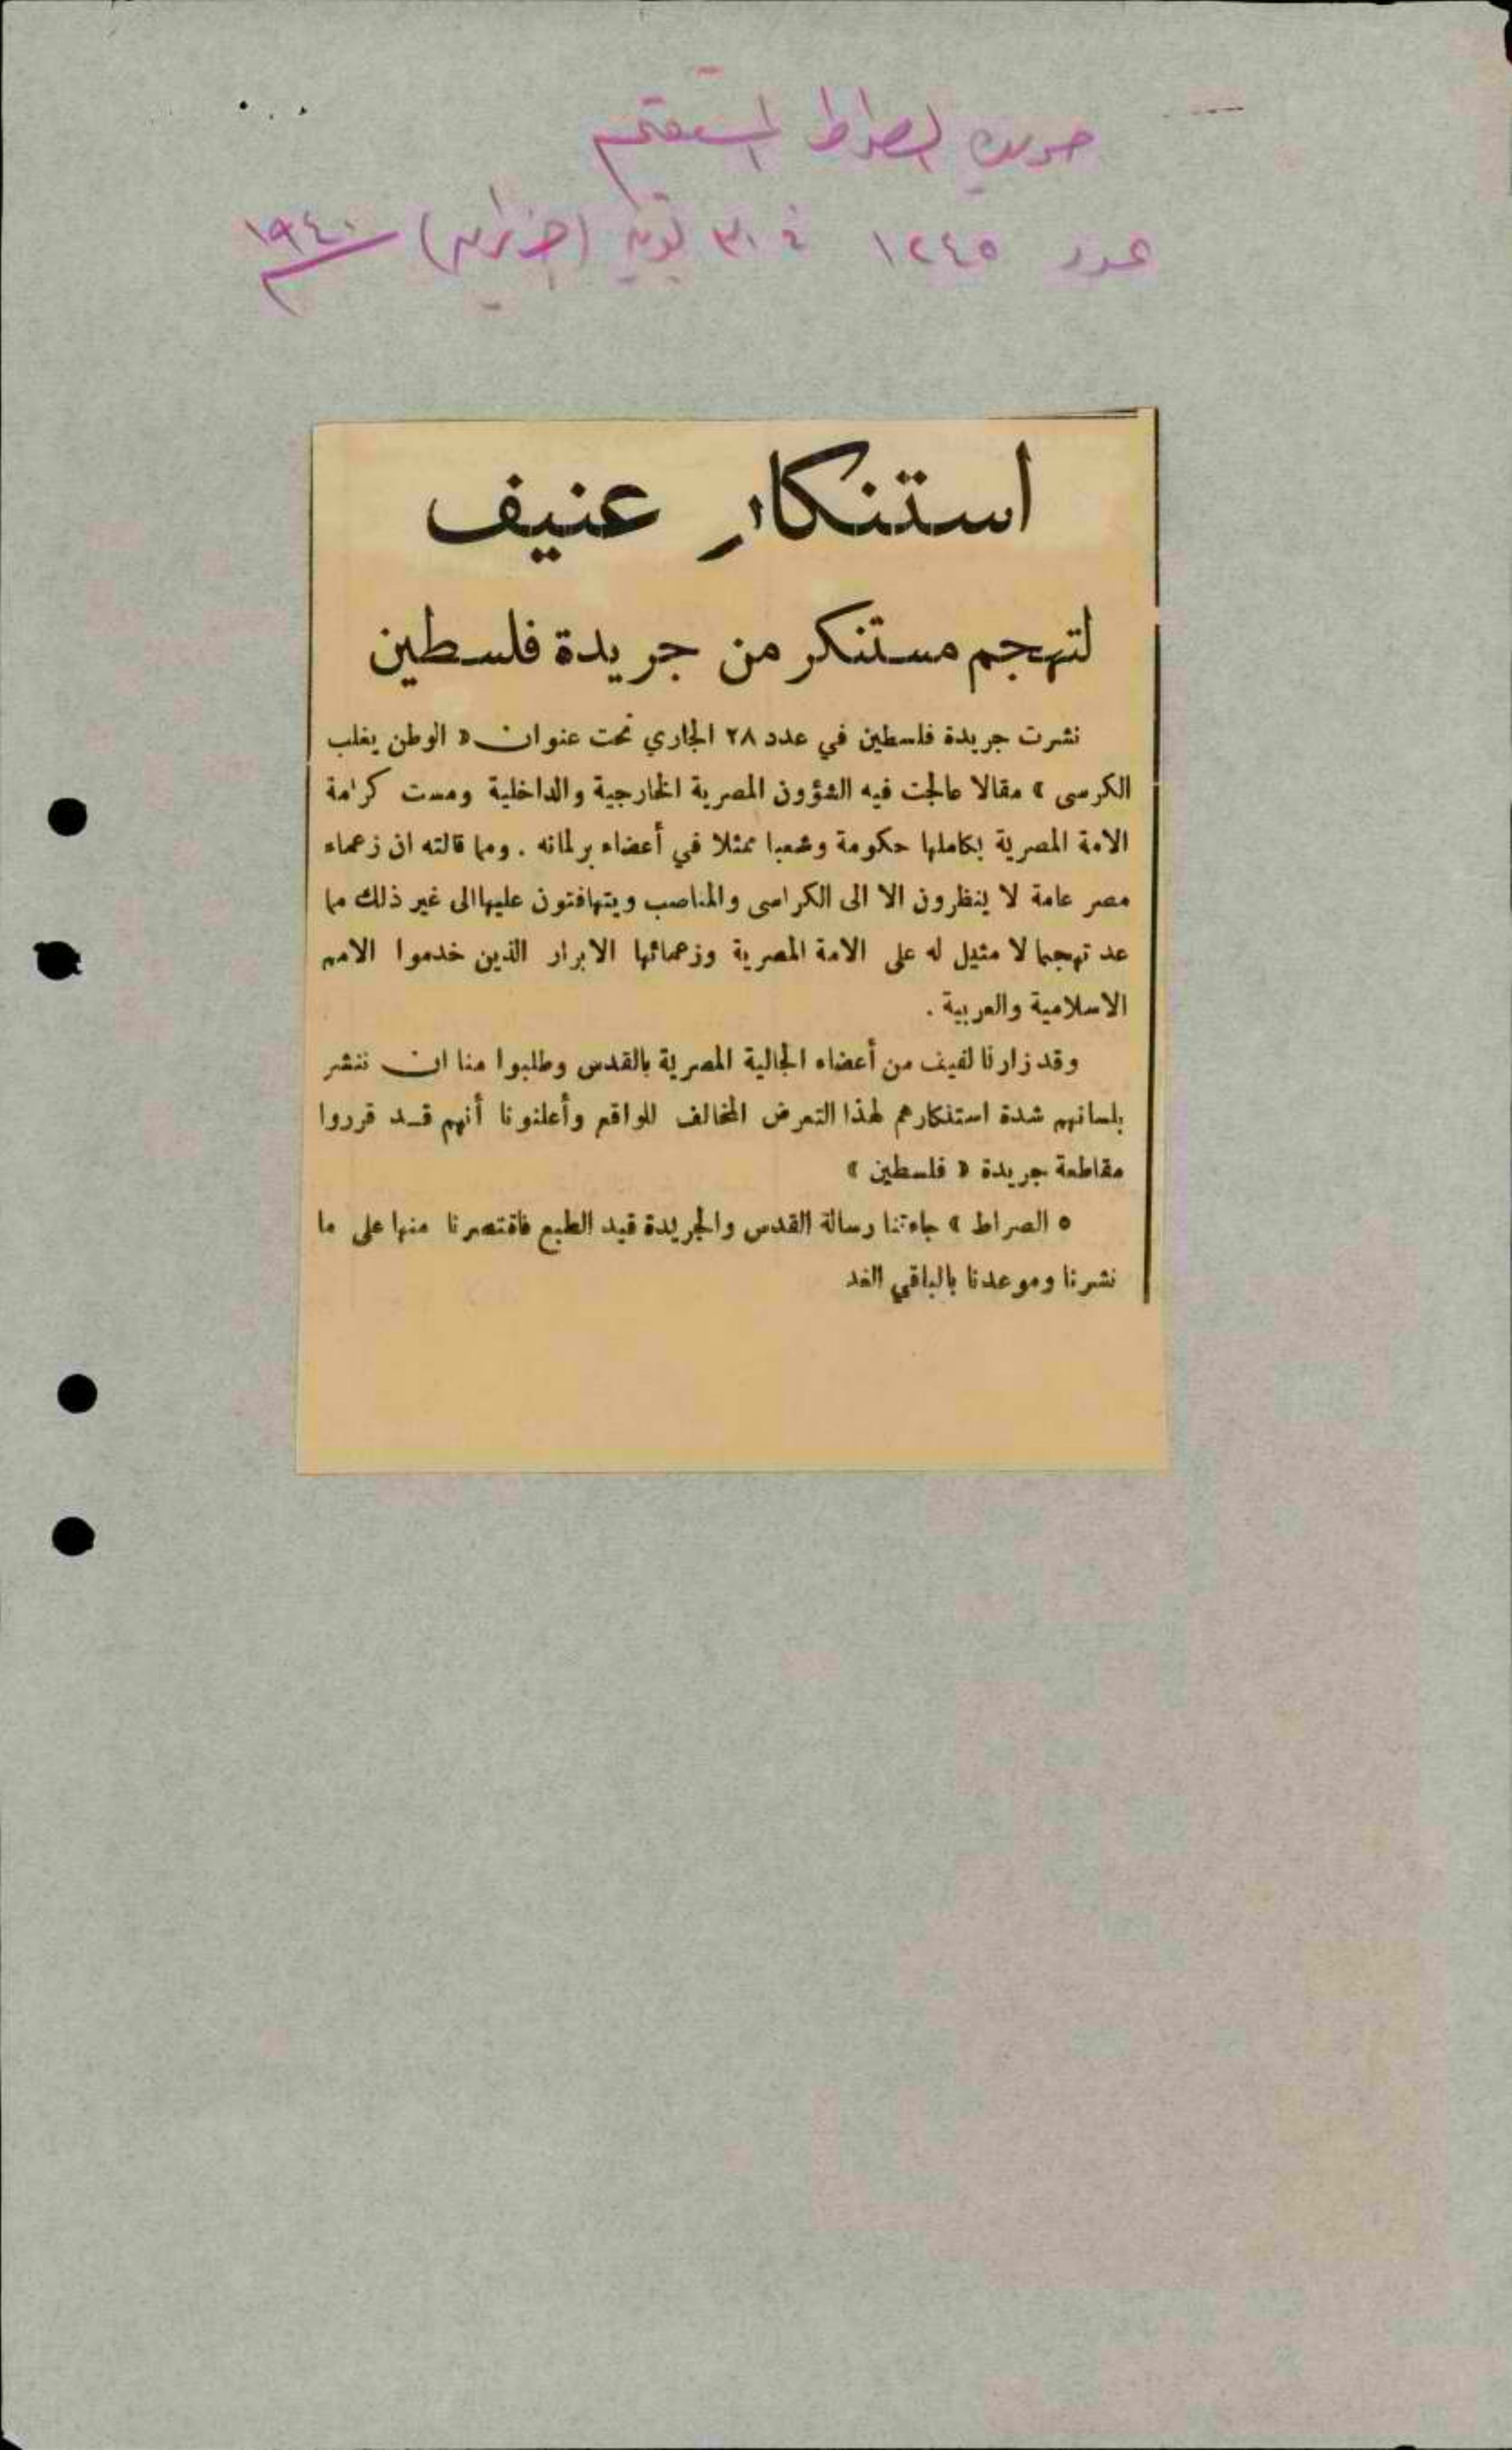 جريدة الصراط المستقيم
عدد ١٢٤٥ في ٣٠ يونيه (حزيران) ١٩٤٠
استنكار عنيف
لتهجم مستنكر من جريدة فلسطين
نشرت جريدة فلسطين في عدد ٢٨ الجاري تحت عنوان « الوطن يغلب
الكرسى » مقالا عالجت فيه الشؤون المصرية الخارجية والداخلية ومست كرامة
الامة المصرية بكاملها حكومة وشعبا ممثلا في أعضاء برلمانه . ومما قالته ان زعماء
مصر عامة لا ينظرون الا الى الكراسى والمناصب ويتهافتون عليها الى غير ذلك مما
عد تهجما لا مثيل له على الامة المصرية وزعمائها الابرار الذين خدموا الامم
الاسلامية والعربية .
وقد زارنا لفيف من أعضاء الجالية المصرية بالقدس وطلبوا منا ان ننشر
بلسانهم شدة استنكارهم لهذا التعرض المخالف للواقع وأعلنونا أنهم قد قرروا
مقاطعة جريدة « فلسطين »
٥ الصراط » جاءتنا رسالة القدس والجريدة قيد الطبع فاقتصرنا منها على ما
نشرنا وموعدنا بالباقي الغد